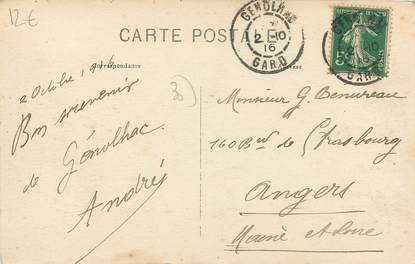 12-€
CARTE POSTALE
Correspondance
GENOLHAC
2 -10
16
GARD
5
2 Octobre 1916
Bon souvenir
de Génolhac.
André
30
Monsieur G. Benureau
160 Bd de Strasbourg
Angers
Maine et Loire